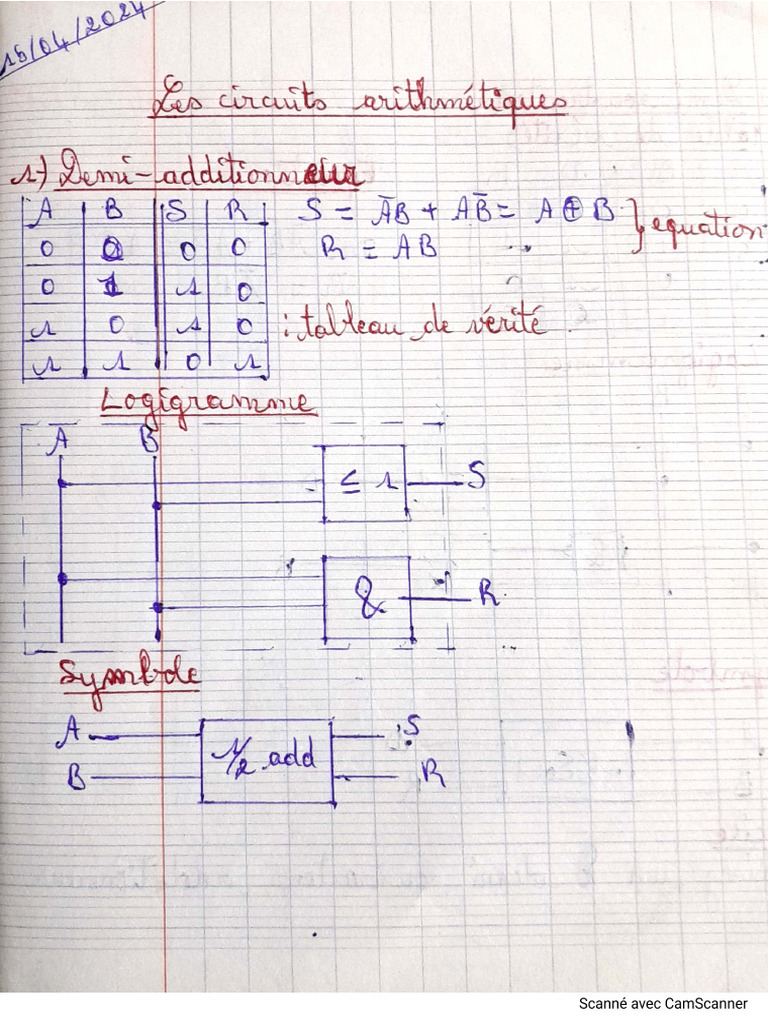 15/04/2024
Les circuits arithmétiques
1) Demi-additionneur
A B S R S = A̅B + AB̅ = A ⊕ B } equation
0 0 0 0 R = AB
0 1 1 0
1 0 1 0 : tableau de vérité.
1 1 0 1
Logigramme
A B
≤ 1 S
& R
Symbole
A S
1/2 add
B R
Scanné avec CamScanner